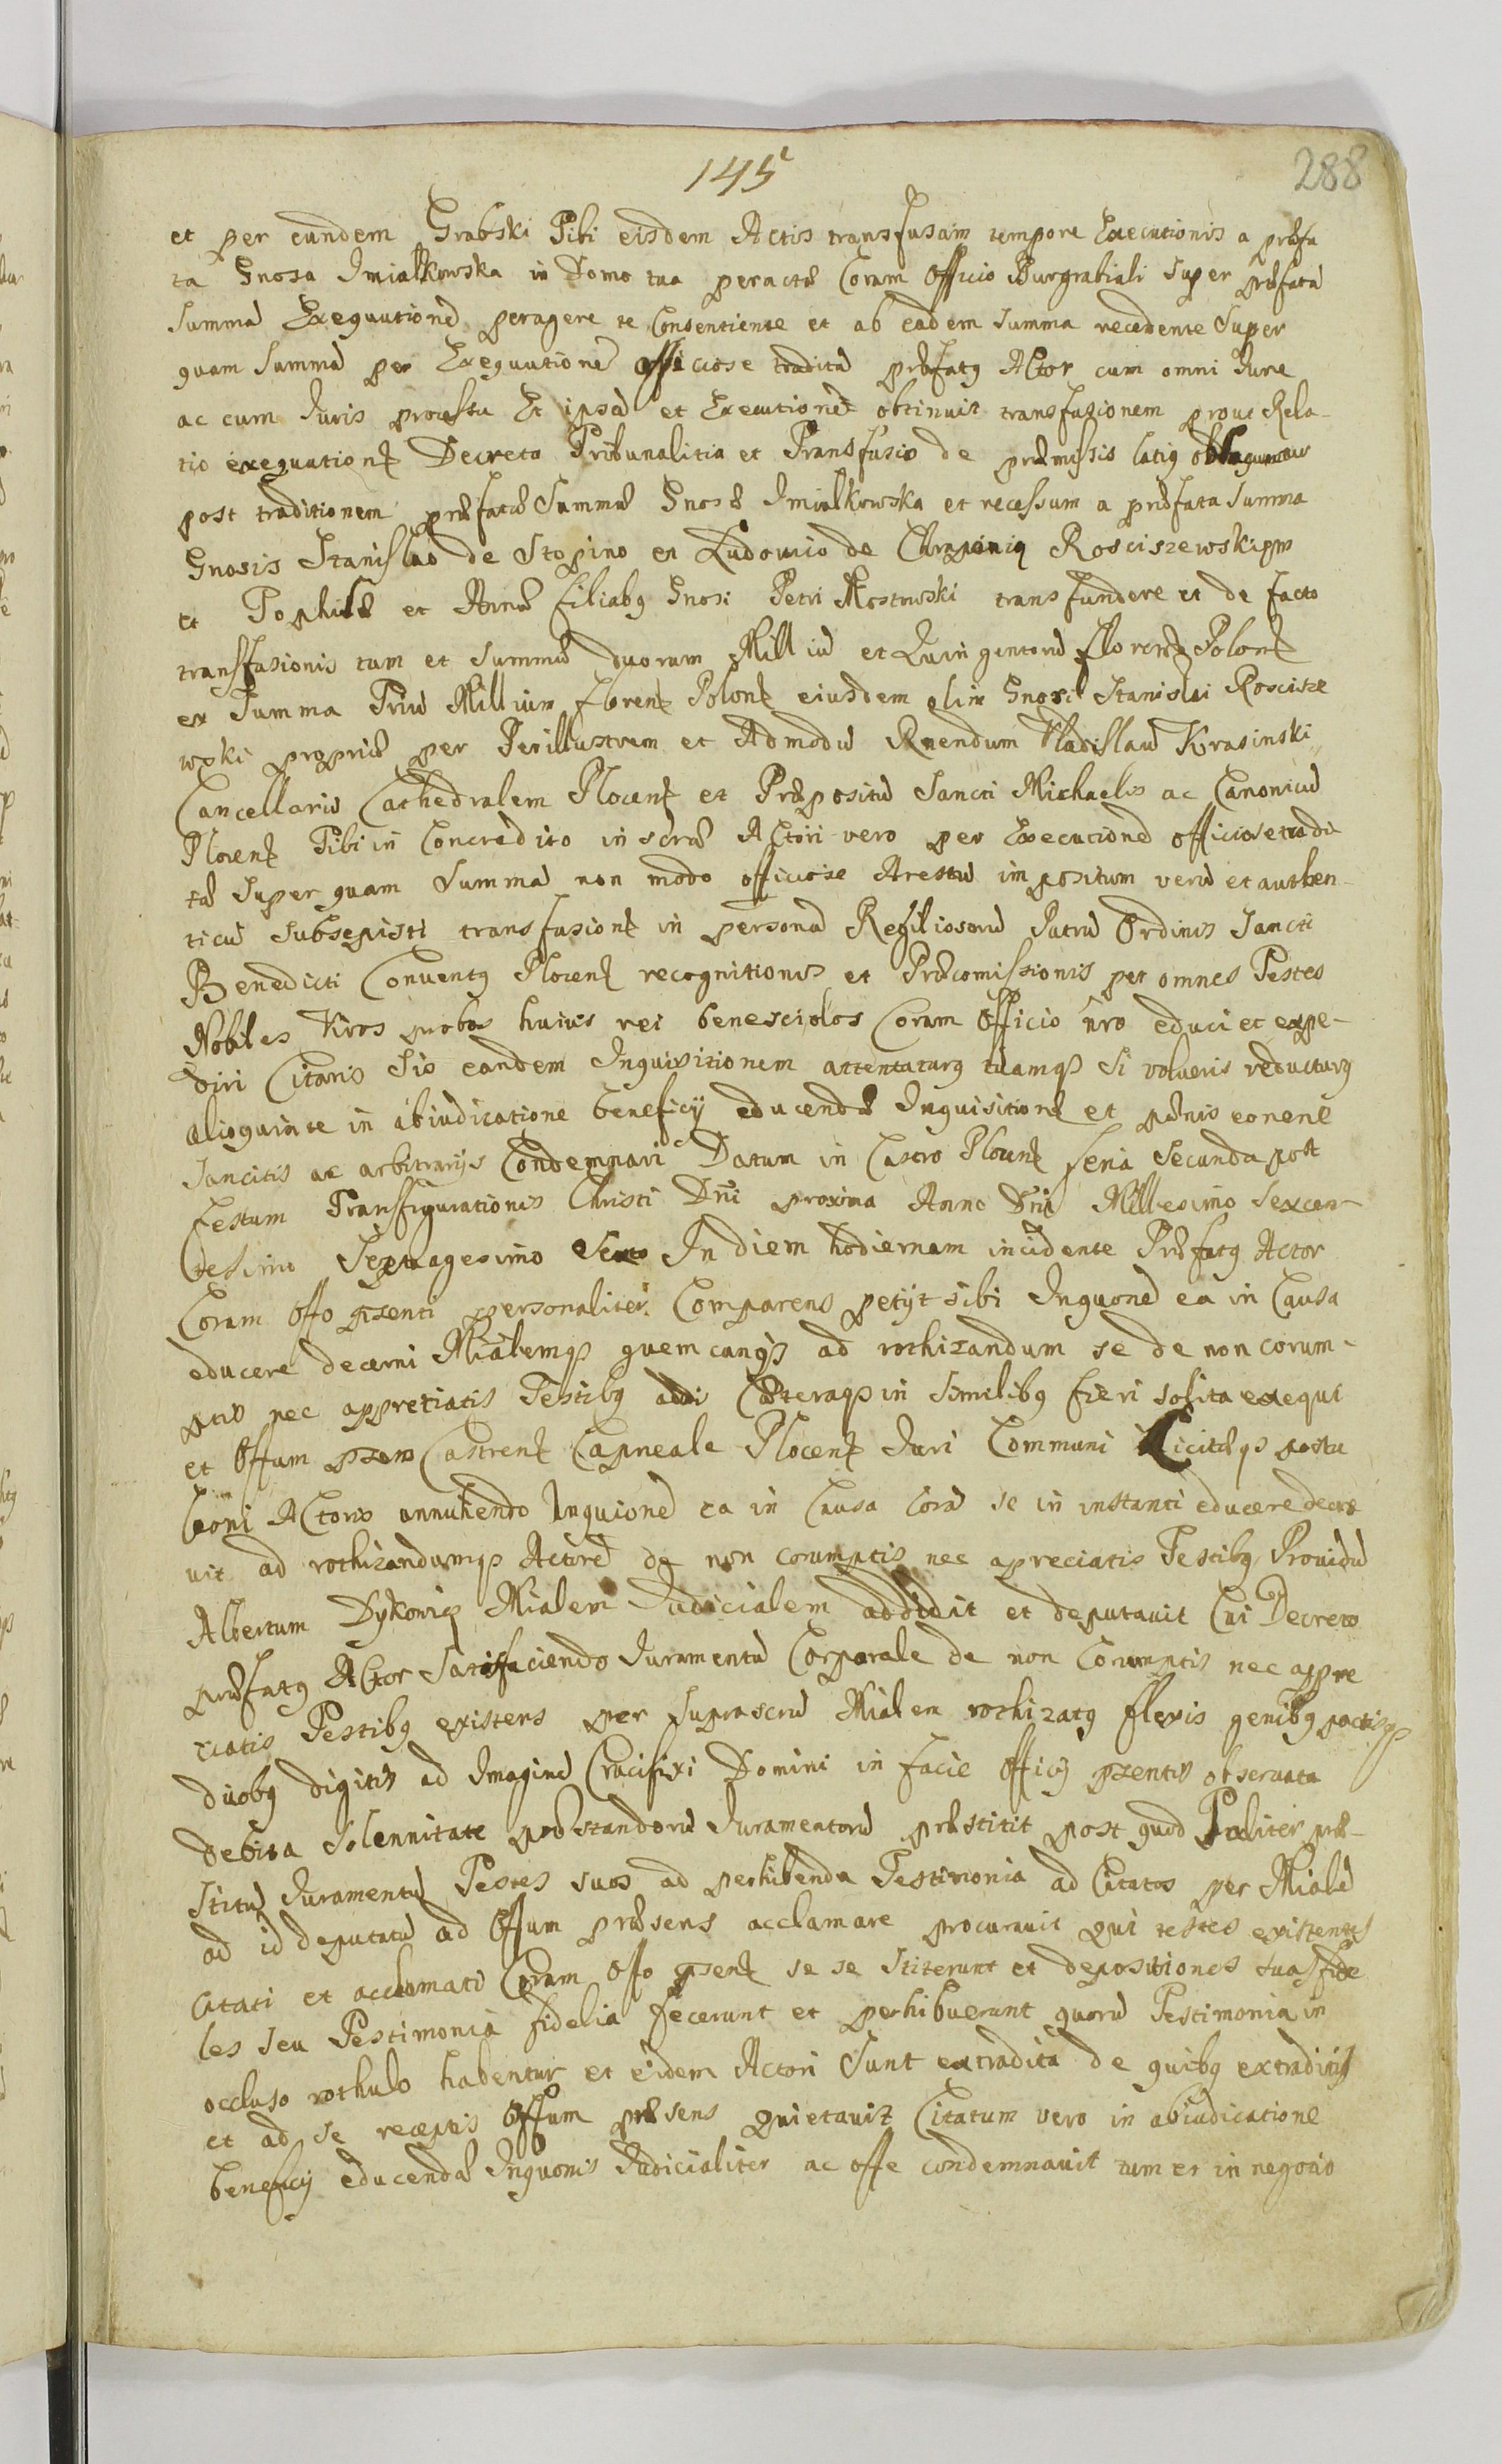 145
288
et per eundem Grabski Tibi eisdem Actis transfusam tempore Executionis a præfa
ta Gnosa Imiałkowska in Domo tua peractæ Coram Officio Burgrabiali super præfatā
Summā Exequutionē peragere te Consentiente et ab eadem summa recedente Super
quam Summā per Exequutionē officiose traditā præfatq Actor cum omni Iure
ac cum Iuris processu Et ipsā et Executionē obtinuit transfusionem prout Rela-
tio exequution Decreta Tribunalitia et Transfusio de præmissis latiq
post traditionem præfatæ Summæ Gnosæ Imiałkowska et recessum a præfata Summa
Gnosis Stanislao de Stopino et Ludovico de Rosciszewskim
et Tophilæ et Annæ filiabq Gnosi Petri Mostowski transfundere et de facto
transfusionis tum et Summæ duorum Milliū et Quingentorū floren Polon
ex Summa Triū Millium floren Polon eiusdem olim Gnosi Stanislai Roscisze
wski propriæ per Perillustrem et Admodū Rnendum Vladislaū Krasinski
Cancellariū Cathedralem Plocen et Præpositū Sancti Michaelis ac Canonicū
Plocen Tibi in Concredito inscræ Actori vero per Executionē officiose tradi
tā Super quam Summā non modo officiose Arestū impositum verū et authen-
ticū subsepisti transfusion in personā Religiosorū Patrū Ordinis Sancti
Benedicti Conventq Plocen recognitionis et Præcomissionis per omnes Testes
Nobiles Viros probos huius rei benesciolos Coram Officio nro educi et expe-
diri Citaris Sis eandem Inquisitionem attentaturq tuamq si volueris reducturq
alioquin te in abiudicatione beneficij educendæ Inquisitionis et pænis eo nene
Sancitis ac arbitrarijs Condemnari Datum in Castro Plocen feria Secunda post
festum Transfigurationis Christi Dni proxima Anno Dni Millesimo Sexcen
tesimo Septuagesimo Sexto In diem hodiernam incidente Præfatq Actor
Coram Offo psenti personaliter Comparens petijt sibi Inquonē ea in Causa
educere decerni Mialemq quemcunq ad rothizandum se de non corum-
ptis nec appretiatis Testibq addi Cæteraq in similibq fieri solita exequi
et Offum psens Castren Capneale Plocen Iuri Communi Licitæq postu
lationi Actoris annuendo Inquionē ea in Causa corā se in instanti educere decre
vit ad rothizandumq Actorē de non corumptis nec apreciatis Testibq Providū
Albertum Dykowicz Mialem Iudicialem addidit et deputavit Cui Decreto
præfatq Actor Satisfaciendo Iuramentū Corporale de non Corumptis nec appre
ciatis Testibq existens per suprascrū Mialem rothizatq flexis genibq
duobq digitis ad Imaginē Crucifixi Domini in facie officij psentis observata
debita Solennitate præstandorū Iuramentorū præstitit post quod Taliter præ-
stitū Iuramentū Testes suos ad perhibenda Testimonia ad Citatos per Mialē
ad id deputatū ad Offum præsens acclamare procuravit qui testes existentes
Citati et acclamati Coram Offo psen se se Stiterunt et depositiones suas fide
les seu Testimonia fidelia fecerunt et perhibuerunt quorū Testimonia in
occluso rothulo habentur et eidem Actori Sunt extradita de quibq extraditis
et ad se receptis Offum præsens quietavit Citatum vero in abiudicatione
beneficij educendæ Inquonis Iudicialiter ac offe condemnavit tum et in negotio